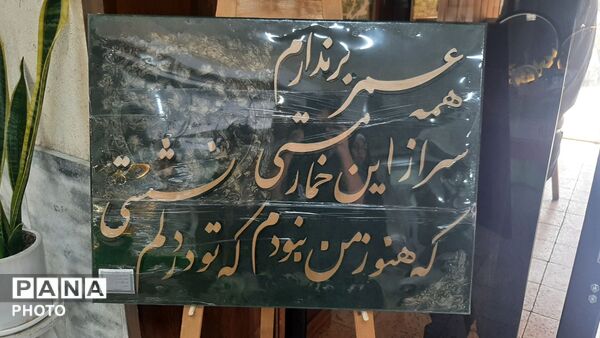 همه عمر برندارم
سر از این خمار مستی
که هنوز من نبودم که تو در دلم نشستی
PANA
PHOTO